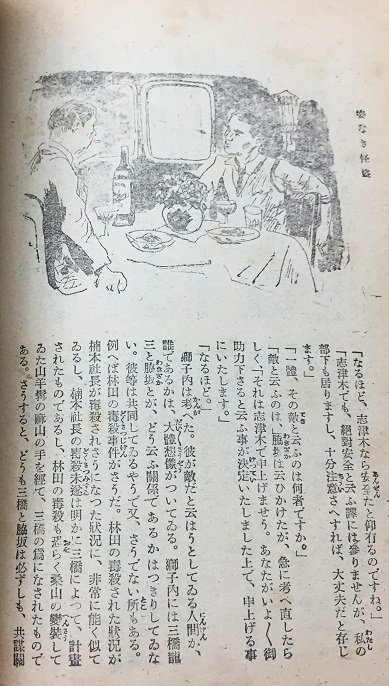 姿なき怪盗
「なるほど、志津木なら安全だと仰有るのですね。」
「志津木でも、絶對安全と云ふ譯には參りませんが、私の
部下も居りますし、十分注意さへすれば、大丈夫だと存じ
ます。」
「一體、その敵と云ふのは何者ですか。」
「敵と云ふのは、」脇坂は云ひかけたが、急に考へ直したら
しく、「それは志津木で申上げませう。あなたがいよ〳〵御
助力下さると云ふ事が決定いたしました上で、申上げる事
にいたします。」
「なるほど。」
獅子内は考へた。彼が敵だと云はうとしてゐる人間が、
誰であるかは、大體想像がついてゐる。獅子内には三橋龍
三と脇坂とが、どう云ふ關係であるかはつきりしてゐな
い。彼等は共同してゐるやうで又、さうでない所もある。
例へば林田の毒殺事件がさうだ。林田の毒殺された狀況が
楠本社長が毒殺されさうになつた狀況に、非常に能く似て
ゐるし、楠本社長の毒殺未遂は明かに三橋によつて、計畫
されたものであるし、林田の毒殺も恐らく桑山の變裝して
ゐた山羊鬚の麻山の手を經て、三橋の爲になされたもので
ある。さうすると、どうも三橋と脇坂は必ずしも、共謀關